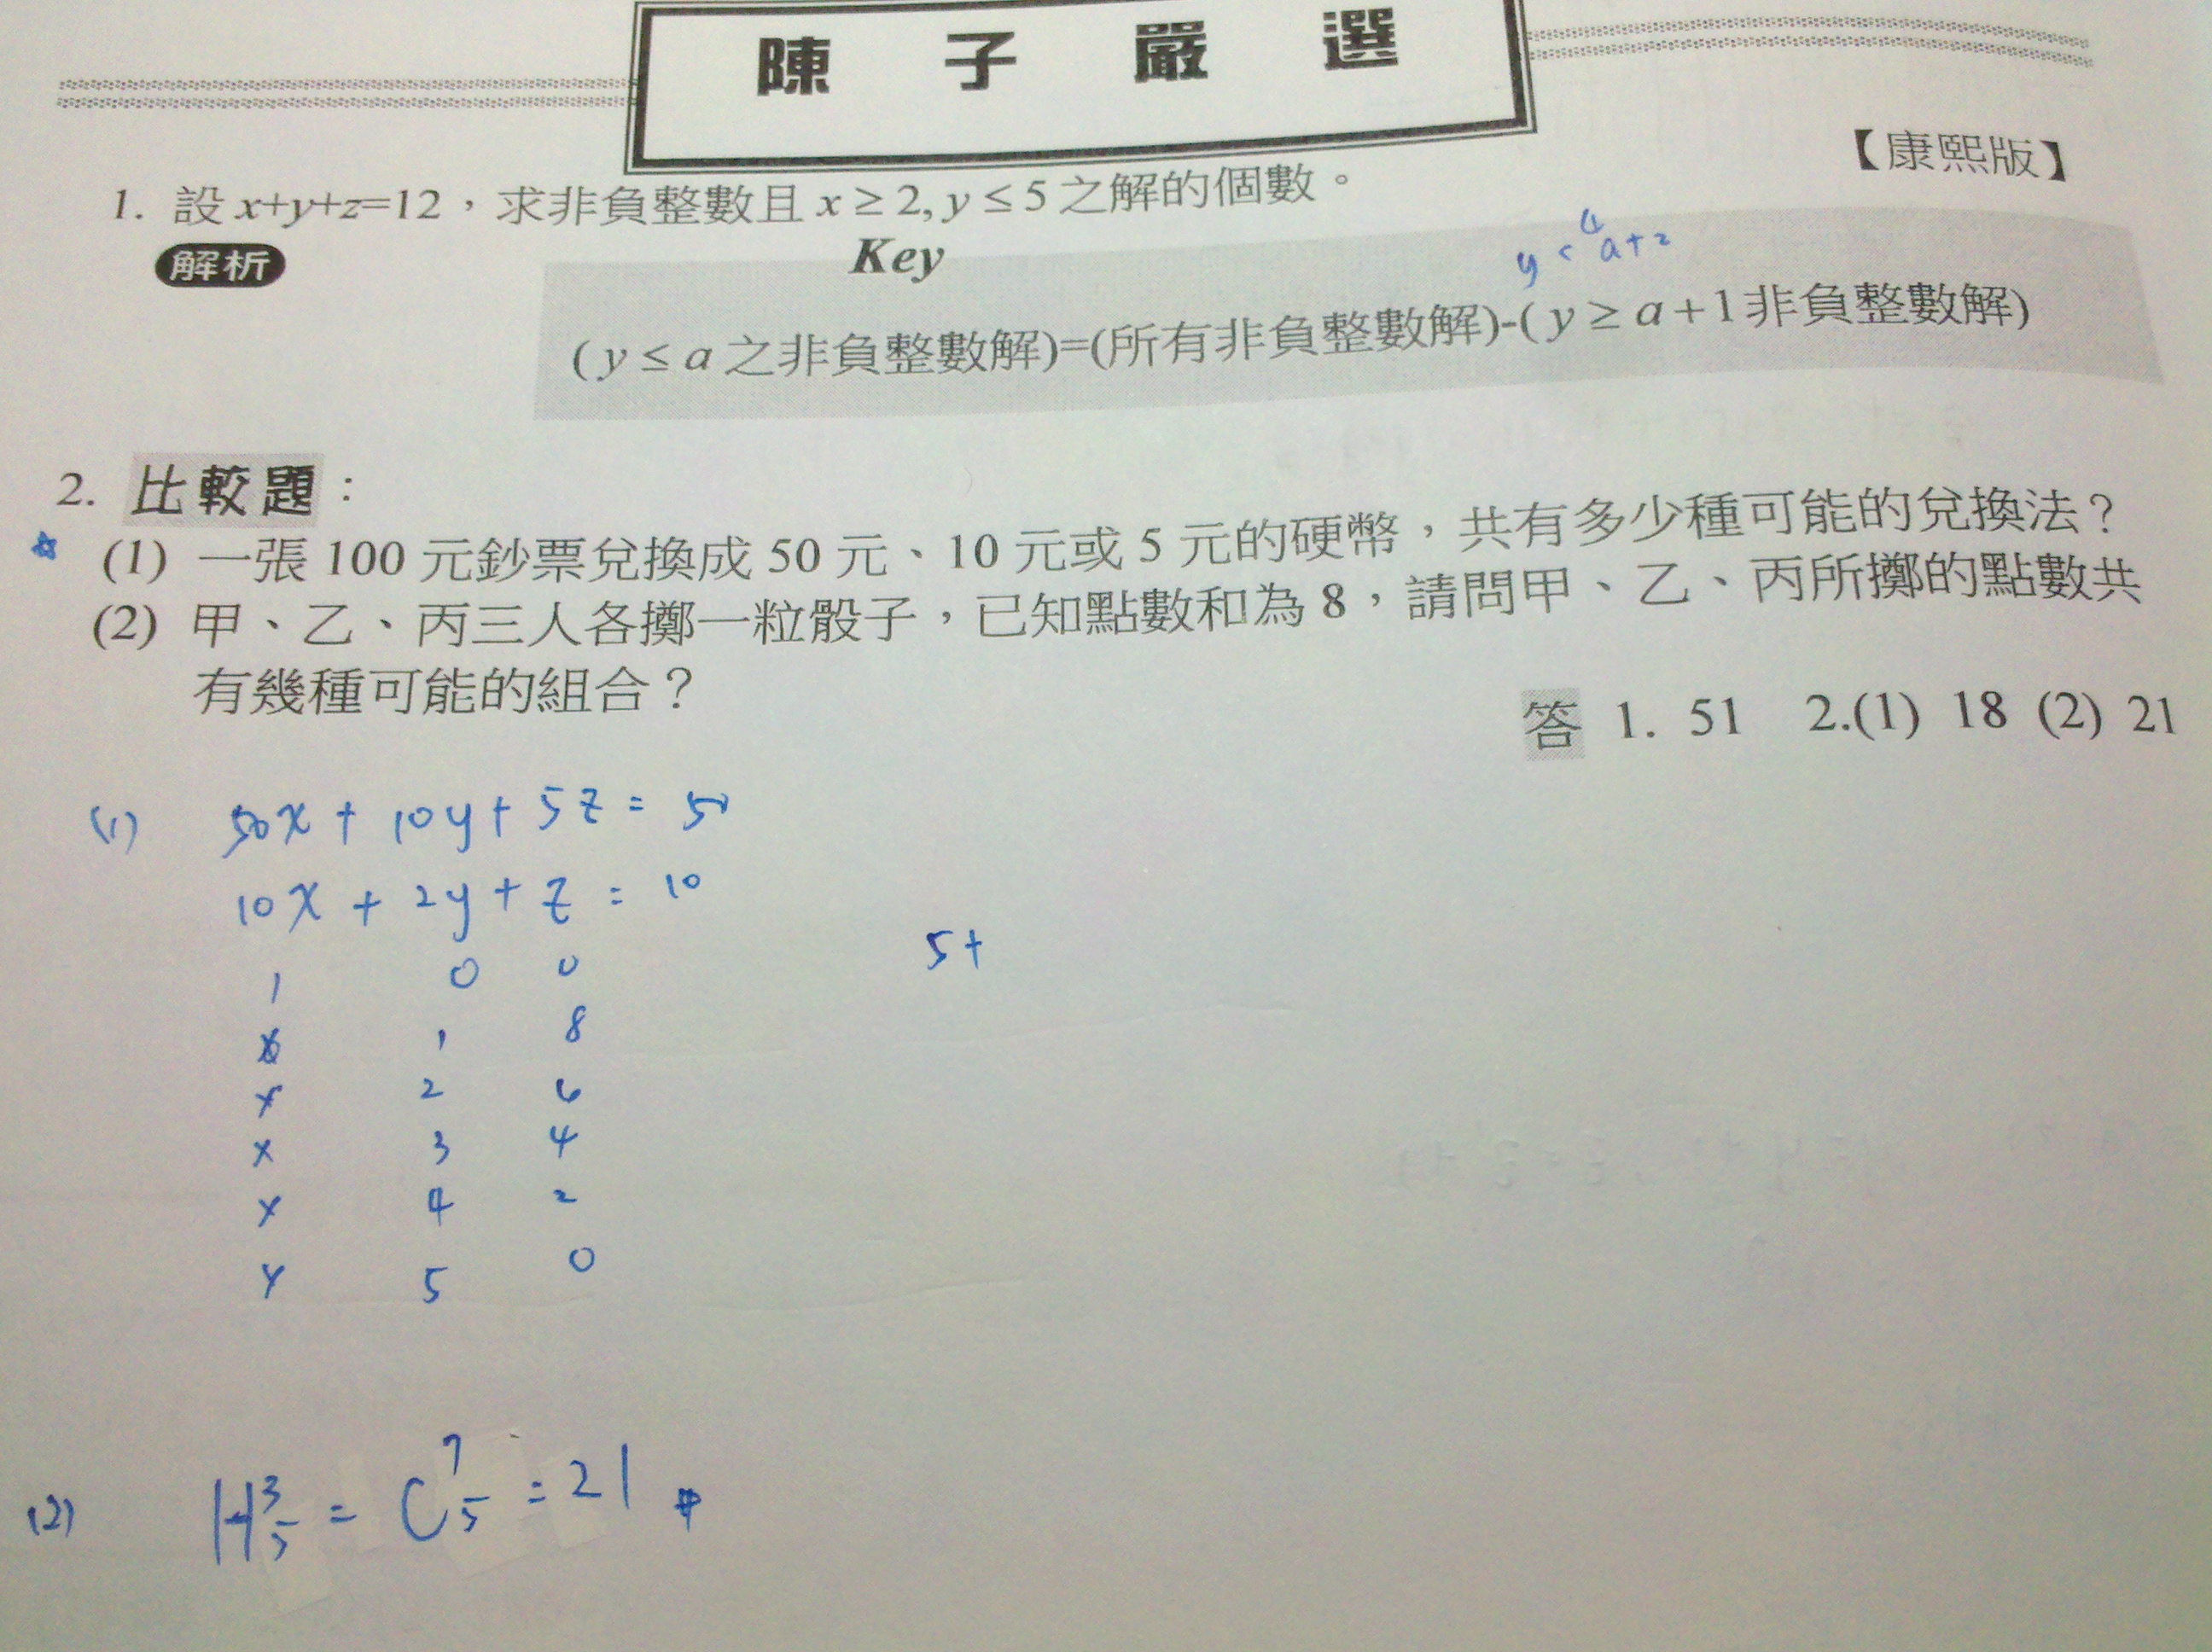 陳子嚴選
【康熙版】
1. 設 x+y+z=12，求非負整數且 x ≥ 2, y ≤ 5 之解的個數。
解析
Key
y < a+2
(y ≤ a 之非負整數解)=(所有非負整數解)-(y ≥ a+1 非負整數解)
2. 比較題：
(1) 一張 100 元鈔票兌換成 50 元、10 元或 5 元的硬幣，共有多少種可能的兌換法？
(2) 甲、乙、丙三人各擲一粒骰子，已知點數和為 8，請問甲、乙、丙所擲的點數共
有幾種可能的組合？
答 1. 51 2.(1) 18 (2) 21
(1) 50x + 10y + 5z = 50
10x + 2y + z = 10
5+
1 0 0
x 1 8
x 2 6
x 3 4
x 4 2
x 5 0
(2) H³₅ = C⁷₅ = 21 #